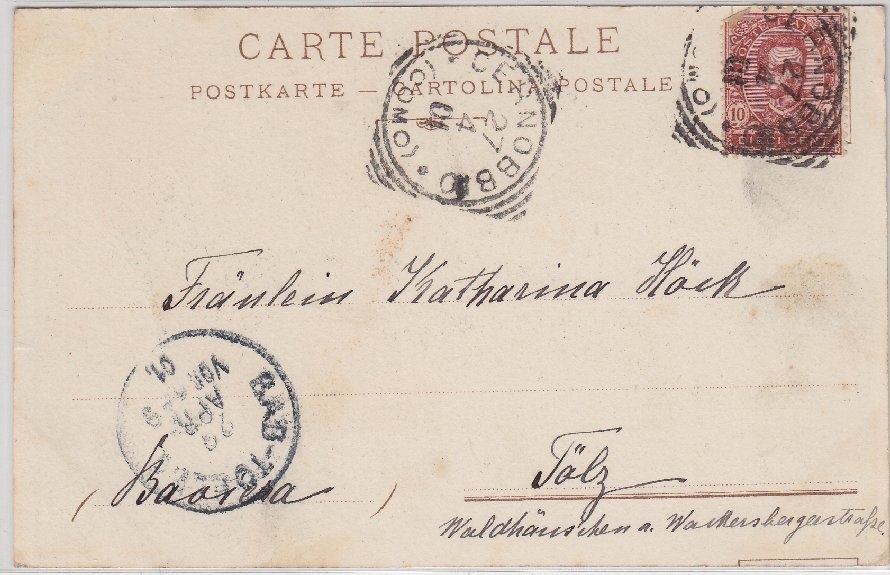 CARTE POSTALE
POSTKARTE — CARTOLINA POSTALE
CERNOBBIO
(COMO)
27
4
01
10
27
4
01
Fräulein Katharina Höck
BAD-TOELZ
29
APR
VOR
01.
Tölz
(Baviera)
Waldhäuschen a. Wackersbergerstraße